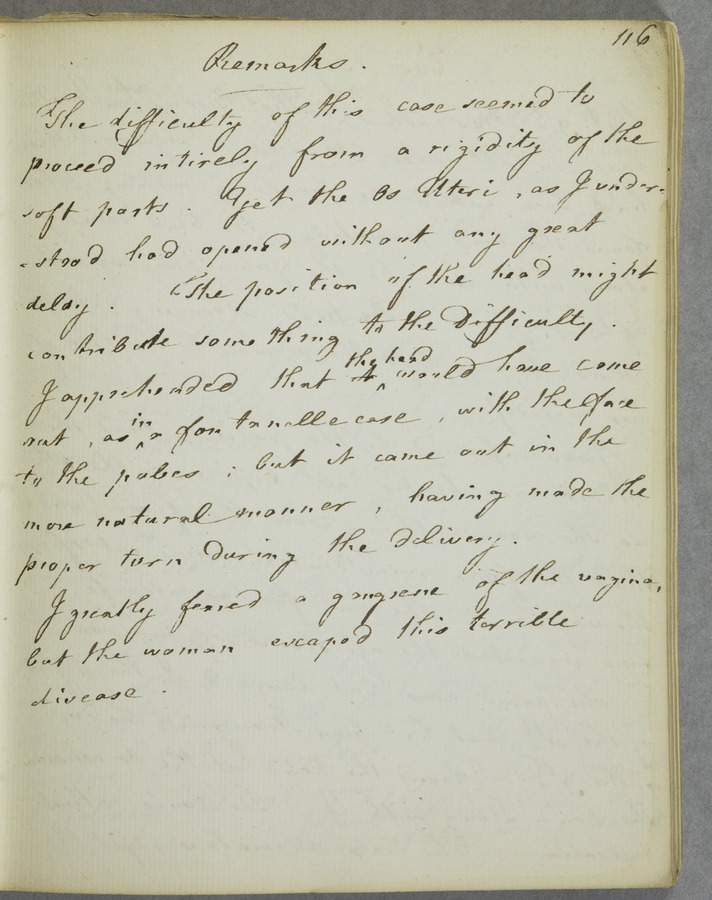 116
Remarks.
The difficulty of this case seemed to
proceed intirely from a rigidity of the
soft parts. Yet the Os Uteri, as I under-
-stood had opened without any great
delay. The position of the head might
contribute something to the Difficulty.
the head
I apprehended that it would have come
in
out, as a fontanelle case, with the face
to the pubes; but it came out in the
more natural manner, having made the
proper turn during the delivery.
I greatly feared a gangrene of the vagina,
but the woman escaped this terrible
disease.